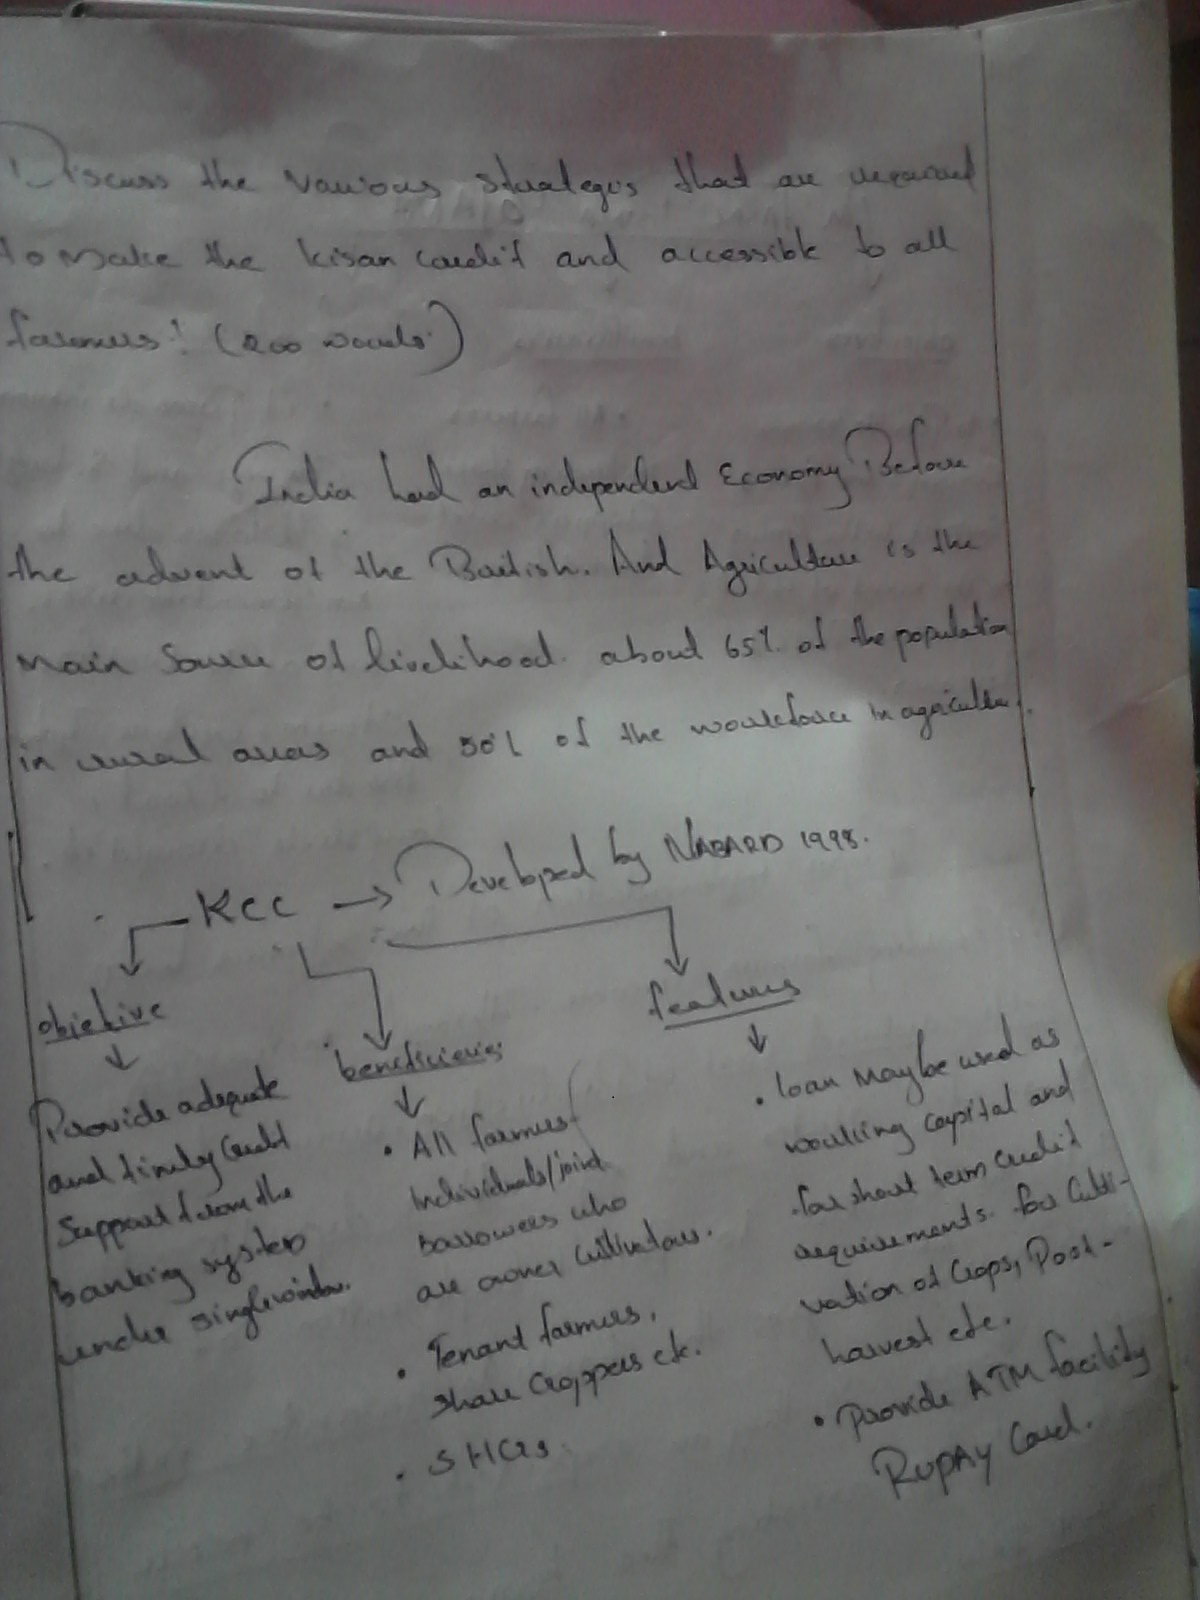 Discuss the various strategies that are required
to make the kisan credit and accessible to all
farmers? (200 words)
India had an independent Economy Before
the advent of the British. And Agriculture is the
main source of livelihood. about 65% of the population
in rural areas and 50% of the workforce in agriculture.
KCC → Developed by NABARD 1998.
objective
Provide adequate
and timely Credit
Support from the
banking system
under single window.
beneficiaries
• All farmers
Individuals/joint
borrowers who
are owner Cultivators.
• Tenant farmers,
share Croppers etc.
• SHGs.
features
• loan may be used as
working capital and
for short term credit
requirements for Culti-
vation of Crops, Post-
harvest etc.
• Provide ATM facility
RUPAY Card.